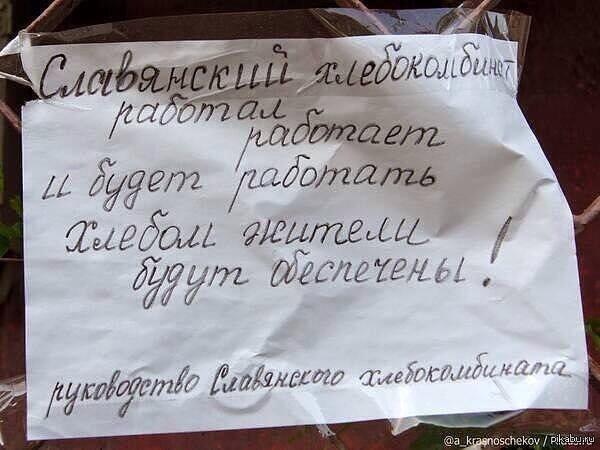 Славянский хлебокомбинат
работал
работает
и будет работать
Хлебом жители
будут обеспечены!
руководство Славянского хлебокомбината
@a_krasnoschekov /
pikabu.ru